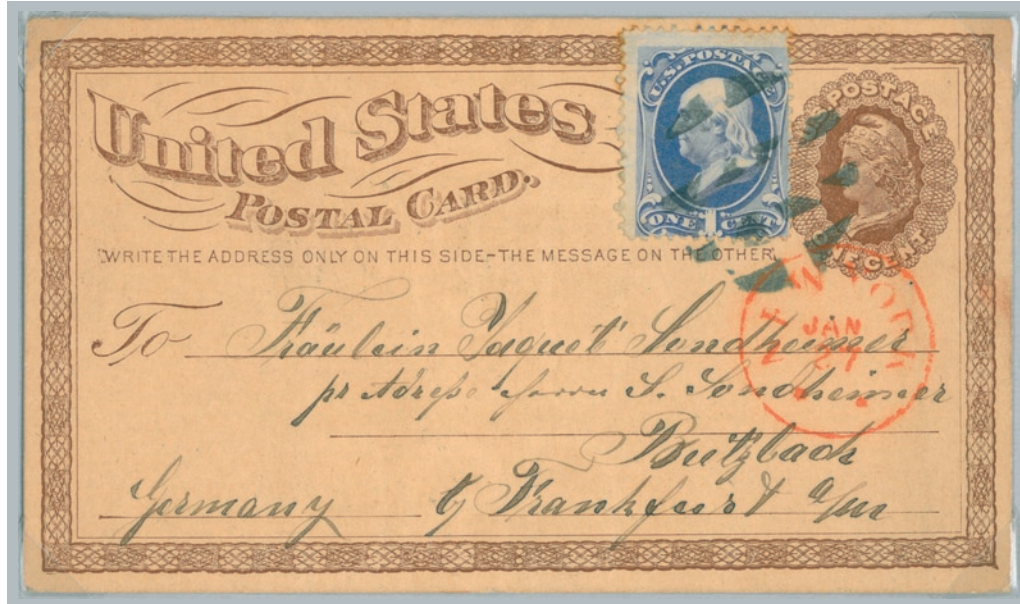 United States
POSTAL CARD.
U.S. POSTAGE
ONE 1 CENT
POSTAGE
ONE CENT
"WRITE THE ADDRESS ONLY ON THIS SIDE–THE MESSAGE ON THE OTHER"
NEW YORK
JAN
27
To Fräulein Jaquet Sondheimer
pr Adresse Herrn S. Sondheimer
Butzbach
Germany b/ Frankfurt a/m